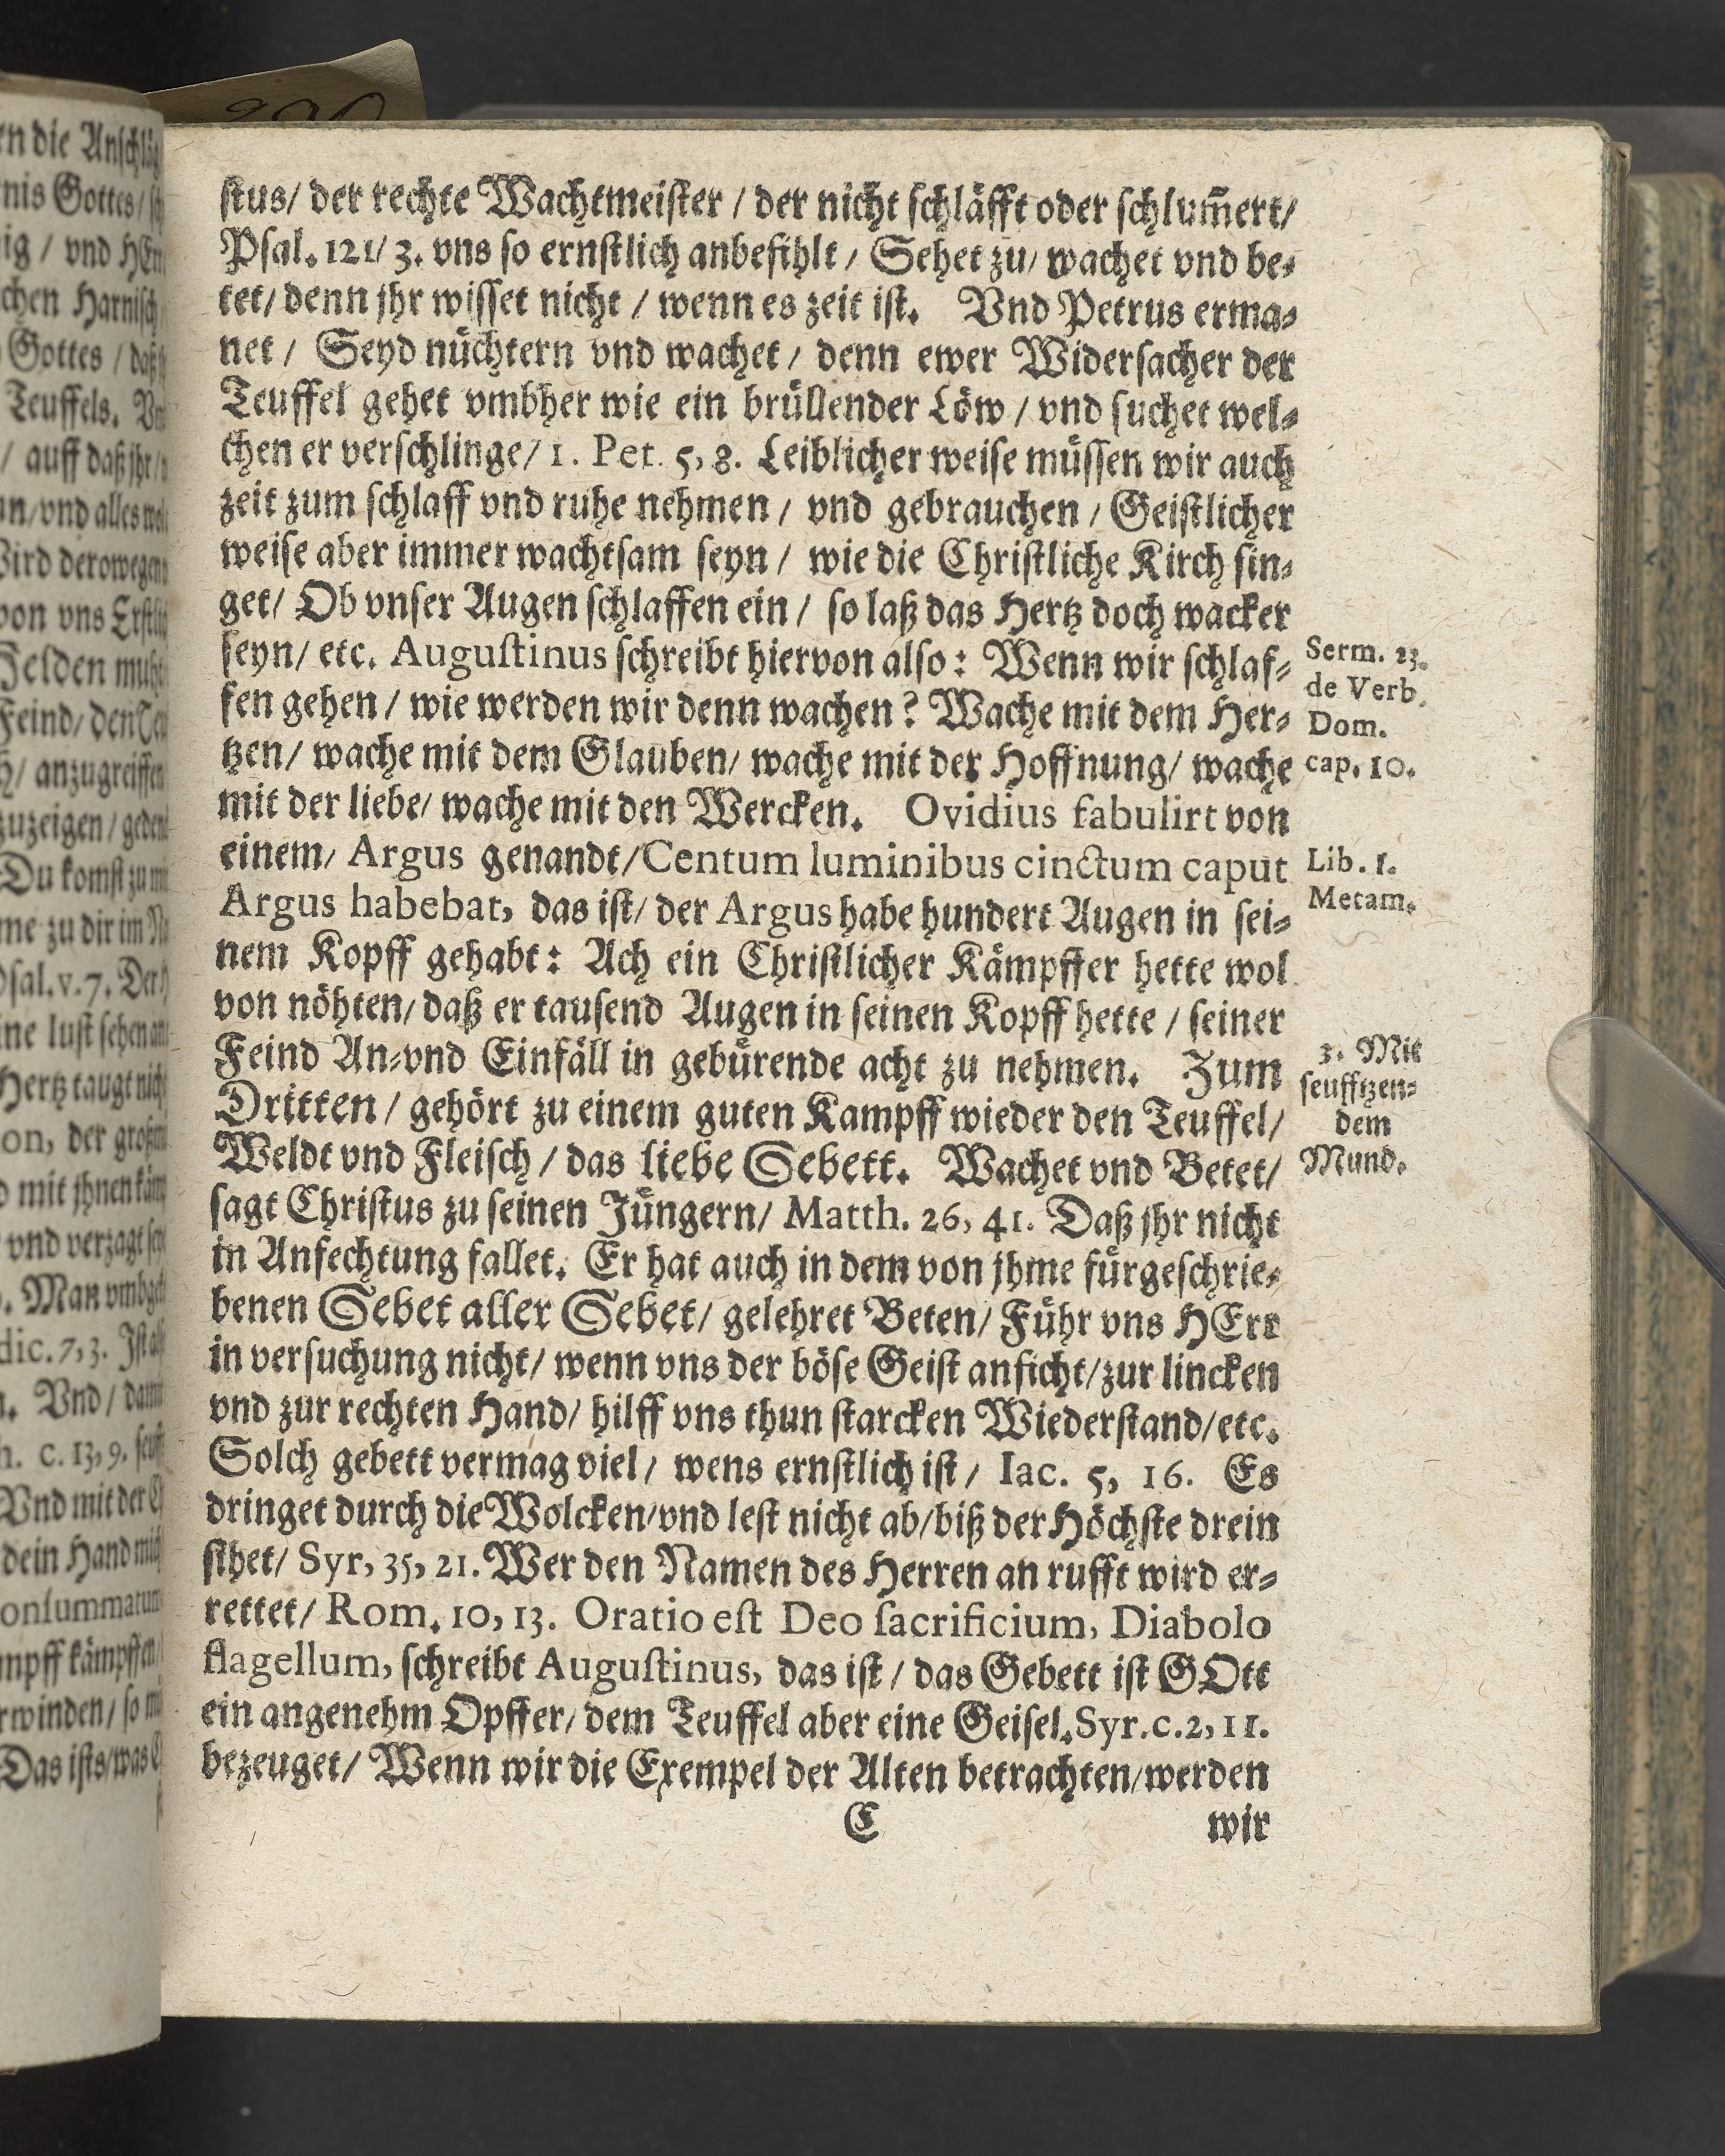 ſtus/ der rechte Wachtmeiſter / der nicht ſchläfft oder ſchlum̃ert/
Pſal. 121/ 3. vns ſo ernſtlich anbefihlt / Sehet zu/ wachet vnd be⸗
tet/ denn jhr wiſſet nicht / wenn es zeit iſt. Vnd Petrus erma⸗
net / Seyd nüchtern vnd wachet / denn ewer Widerſacher der
Teuffel gehet vmbher wie ein brüllender Löw / vnd ſuchet wel⸗
chen er verſchlinge/ 1. Pet. 5, 8. Leiblicher weiſe müſſen wir auch
zeit zum ſchlaff vnd ruhe nehmen / vnd gebrauchen / Geiſtlicher
weiſe aber immer wachtſam ſeyn / wie die Chriſtliche Kirch ſin⸗
get/ Ob vnſer Augen ſchlaffen ein / ſo laß das Hertz doch wacker
ſeyn/ etc. Auguſtinus ſchreibt hiervon alſo: Wenn wir ſchlaf⸗
fen gehen / wie werden wir denn wachen? Wache mit dem Her⸗
tzen/ wache mit dem Glauben/ wache mit der Hoffnung/ wache
mit der liebe/ wache mit den Wercken. Ovidius fabulirt von
einem/ Argus genandt/ Centum luminibus cinctum caput
Argus habebat, das iſt/ der Argus habe hundert Augen in ſei⸗
nem Kopff gehabt: Ach ein Chriſtlicher Kämpffer hette wol
von nöhten/ daß er tauſend Augen in ſeinen Kopff hette / ſeiner
Feind An⸗vnd Einfäll in gebürende acht zu nehmen. Zum
Dritten / gehört zu einem guten Kampff wieder den Teuffel/
Weldt vnd Fleiſch / das liebe Gebett. Wachet vnd Betet/
ſagt Chriſtus zu ſeinen Jüngern/ Matth. 26, 41. Daß jhr nicht
in Anfechtung fallet. Er hat auch in dem von jhme fürgeſchrie⸗
benen Gebet aller Gebet/ gelehret Beten/ Führ vns HErr
in verſuchung nicht/ wenn vns der böſe Geiſt anficht/ zur lincken
vnd zur rechten Hand/ hilff vns thun ſtarcken Wiederſtand/ etc.
Solch gebett vermag viel / wens ernſtlich iſt / Iac. 5, 16. Es
dringet durch die Wolcken/ vnd leſt nicht ab/ biß der Höchſte drein
ſihet/ Syr, 35, 21. Wer den Namen des Herren an rufft wird er⸗
rettet/ Rom. 10, 13. Oratio eſt Deo ſacrificium, Diabolo
flagellum, ſchreibt Auguſtinus, das iſt / das Gebett iſt GOtt
ein angenehm Opffer/ dem Teuffel aber eine Geiſel. Syr. c. 2, 11.
bezeuget/ Wenn wir die Exempel der Alten betrachten/ werden
C wir
Serm. 23.
de Verb.
Dom.
cap. 10.
Lib. 1.
Metam.
3. Mit
ſeufftzen⸗
dem
Mund.